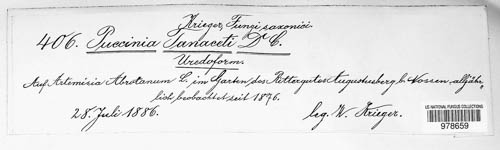 Krieger, Fungi saxonici.
406. Puccinia Tanaceti D.C.
Uredoform.
Auf Artemisia Abrotanum L. im Garten des Rittergutes Augustusberg b. Nossen, alljähr-
lich beobachtet seit 1876.
28. Juli 1886. leg. W. Krieger.
US NATIONAL FUNGUS COLLECTIONS
978659